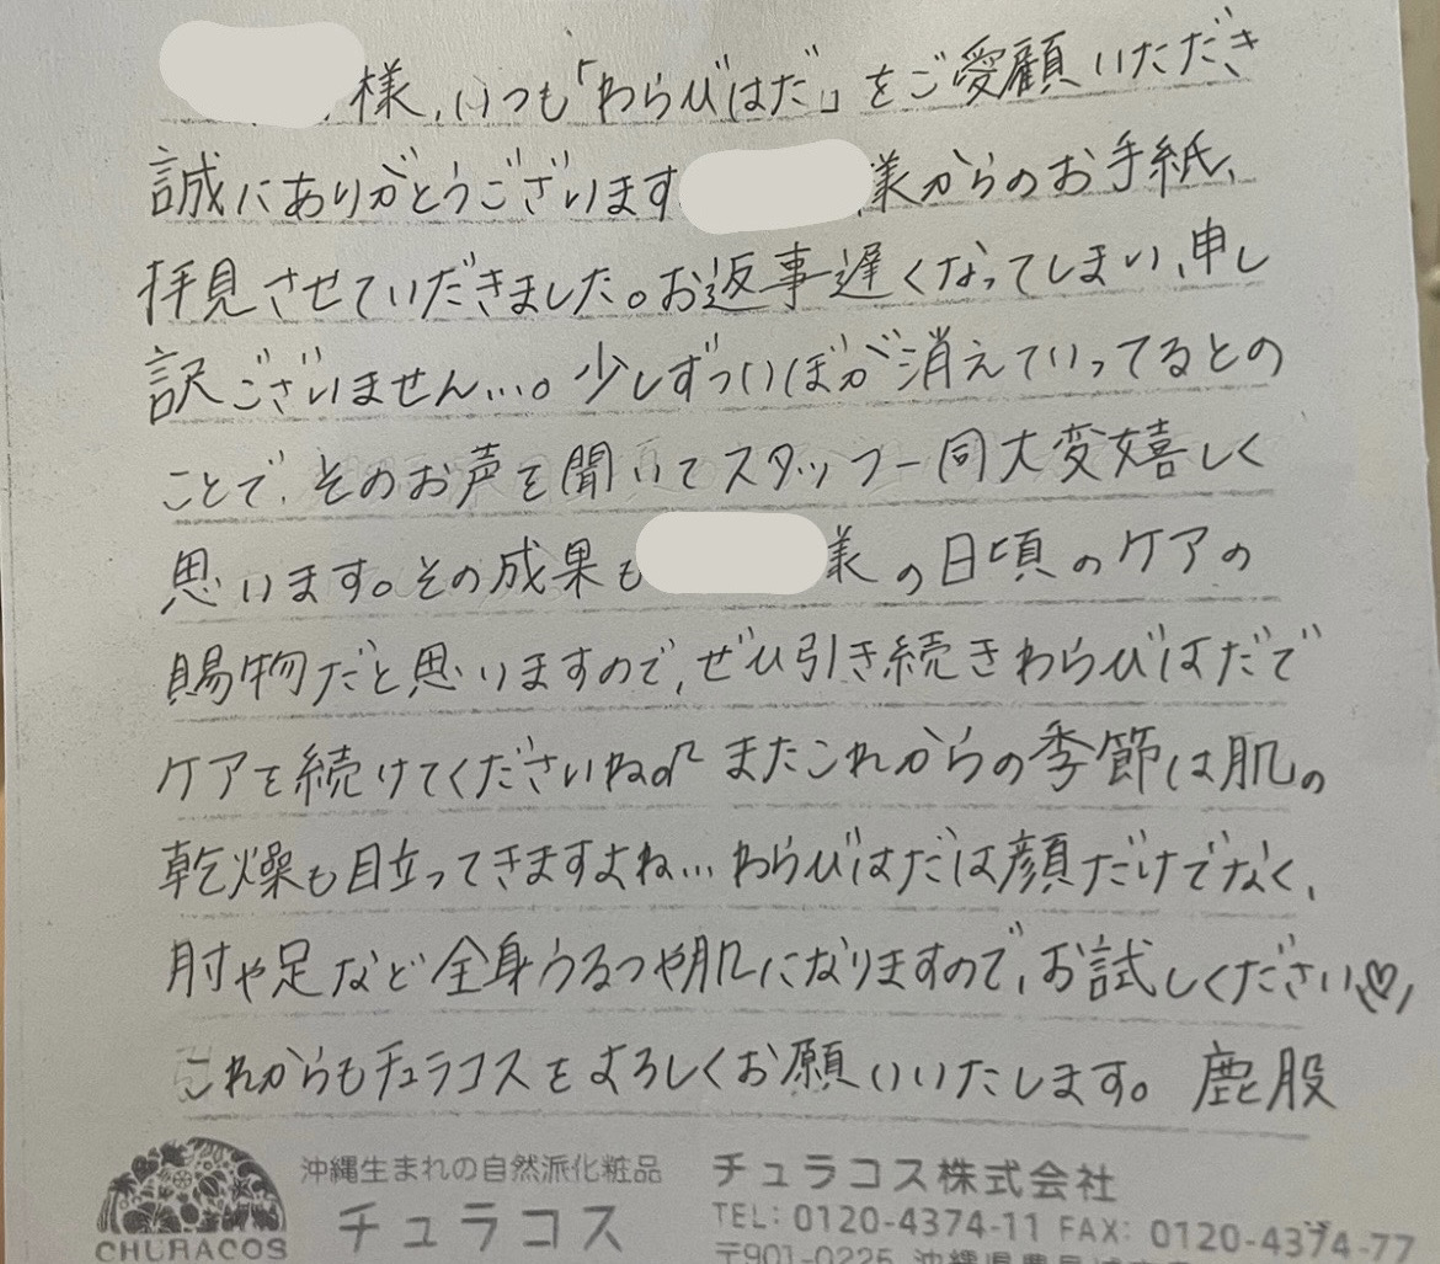 様、いつも「わらびはだ」をご愛顧いただき
誠にありがとうございます 様からのお手紙、
拝見させていただきました。お返事遅くなってしまい、申し
訳ございません...。少しずついぼが消えていってるとの
ことで、そのお声を聞いてスタッフ一同大変嬉しく
思います。その成果も 様の日頃のケアの
賜物だと思いますので、ぜひ引き続きわらびはだで
ケアを続けてくださいね♪ またこれからの季節は肌の
乾燥も目立ってきますよね... わらびはだは顔だけでなく、
肘や足など全身うるつや肌になりますので、お試しください♡
これからもチュラコスをよろしくお願いいたします。 鹿股
沖縄生まれの自然派化粧品
チュラコス
CHURACOS
チュラコス株式会社
TEL: 0120-4374-11 FAX: 0120-4374-77
〒901-0225 沖縄県豊見城市